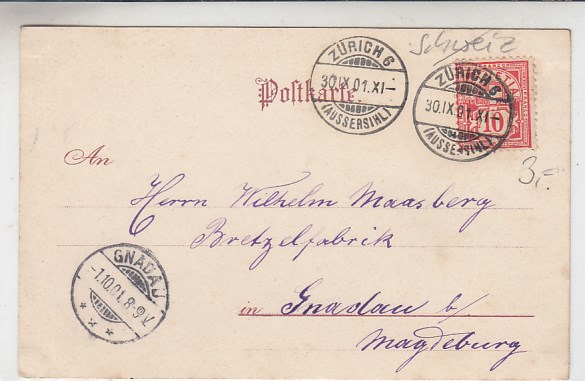 Schweiz
ZÜRICH 6
30.IX.01.XI–
(AUSSERSIHL)
ZÜRICH 6
30.IX.01.XI–
(AUSSERSIHL)
10
Postkarte
3,–
An
Herrn Wilhelm Maasberg
Bretzelfabrik
in Gnadau b/
Magdeburg
GNADAU
–1.10.01.8-9V.